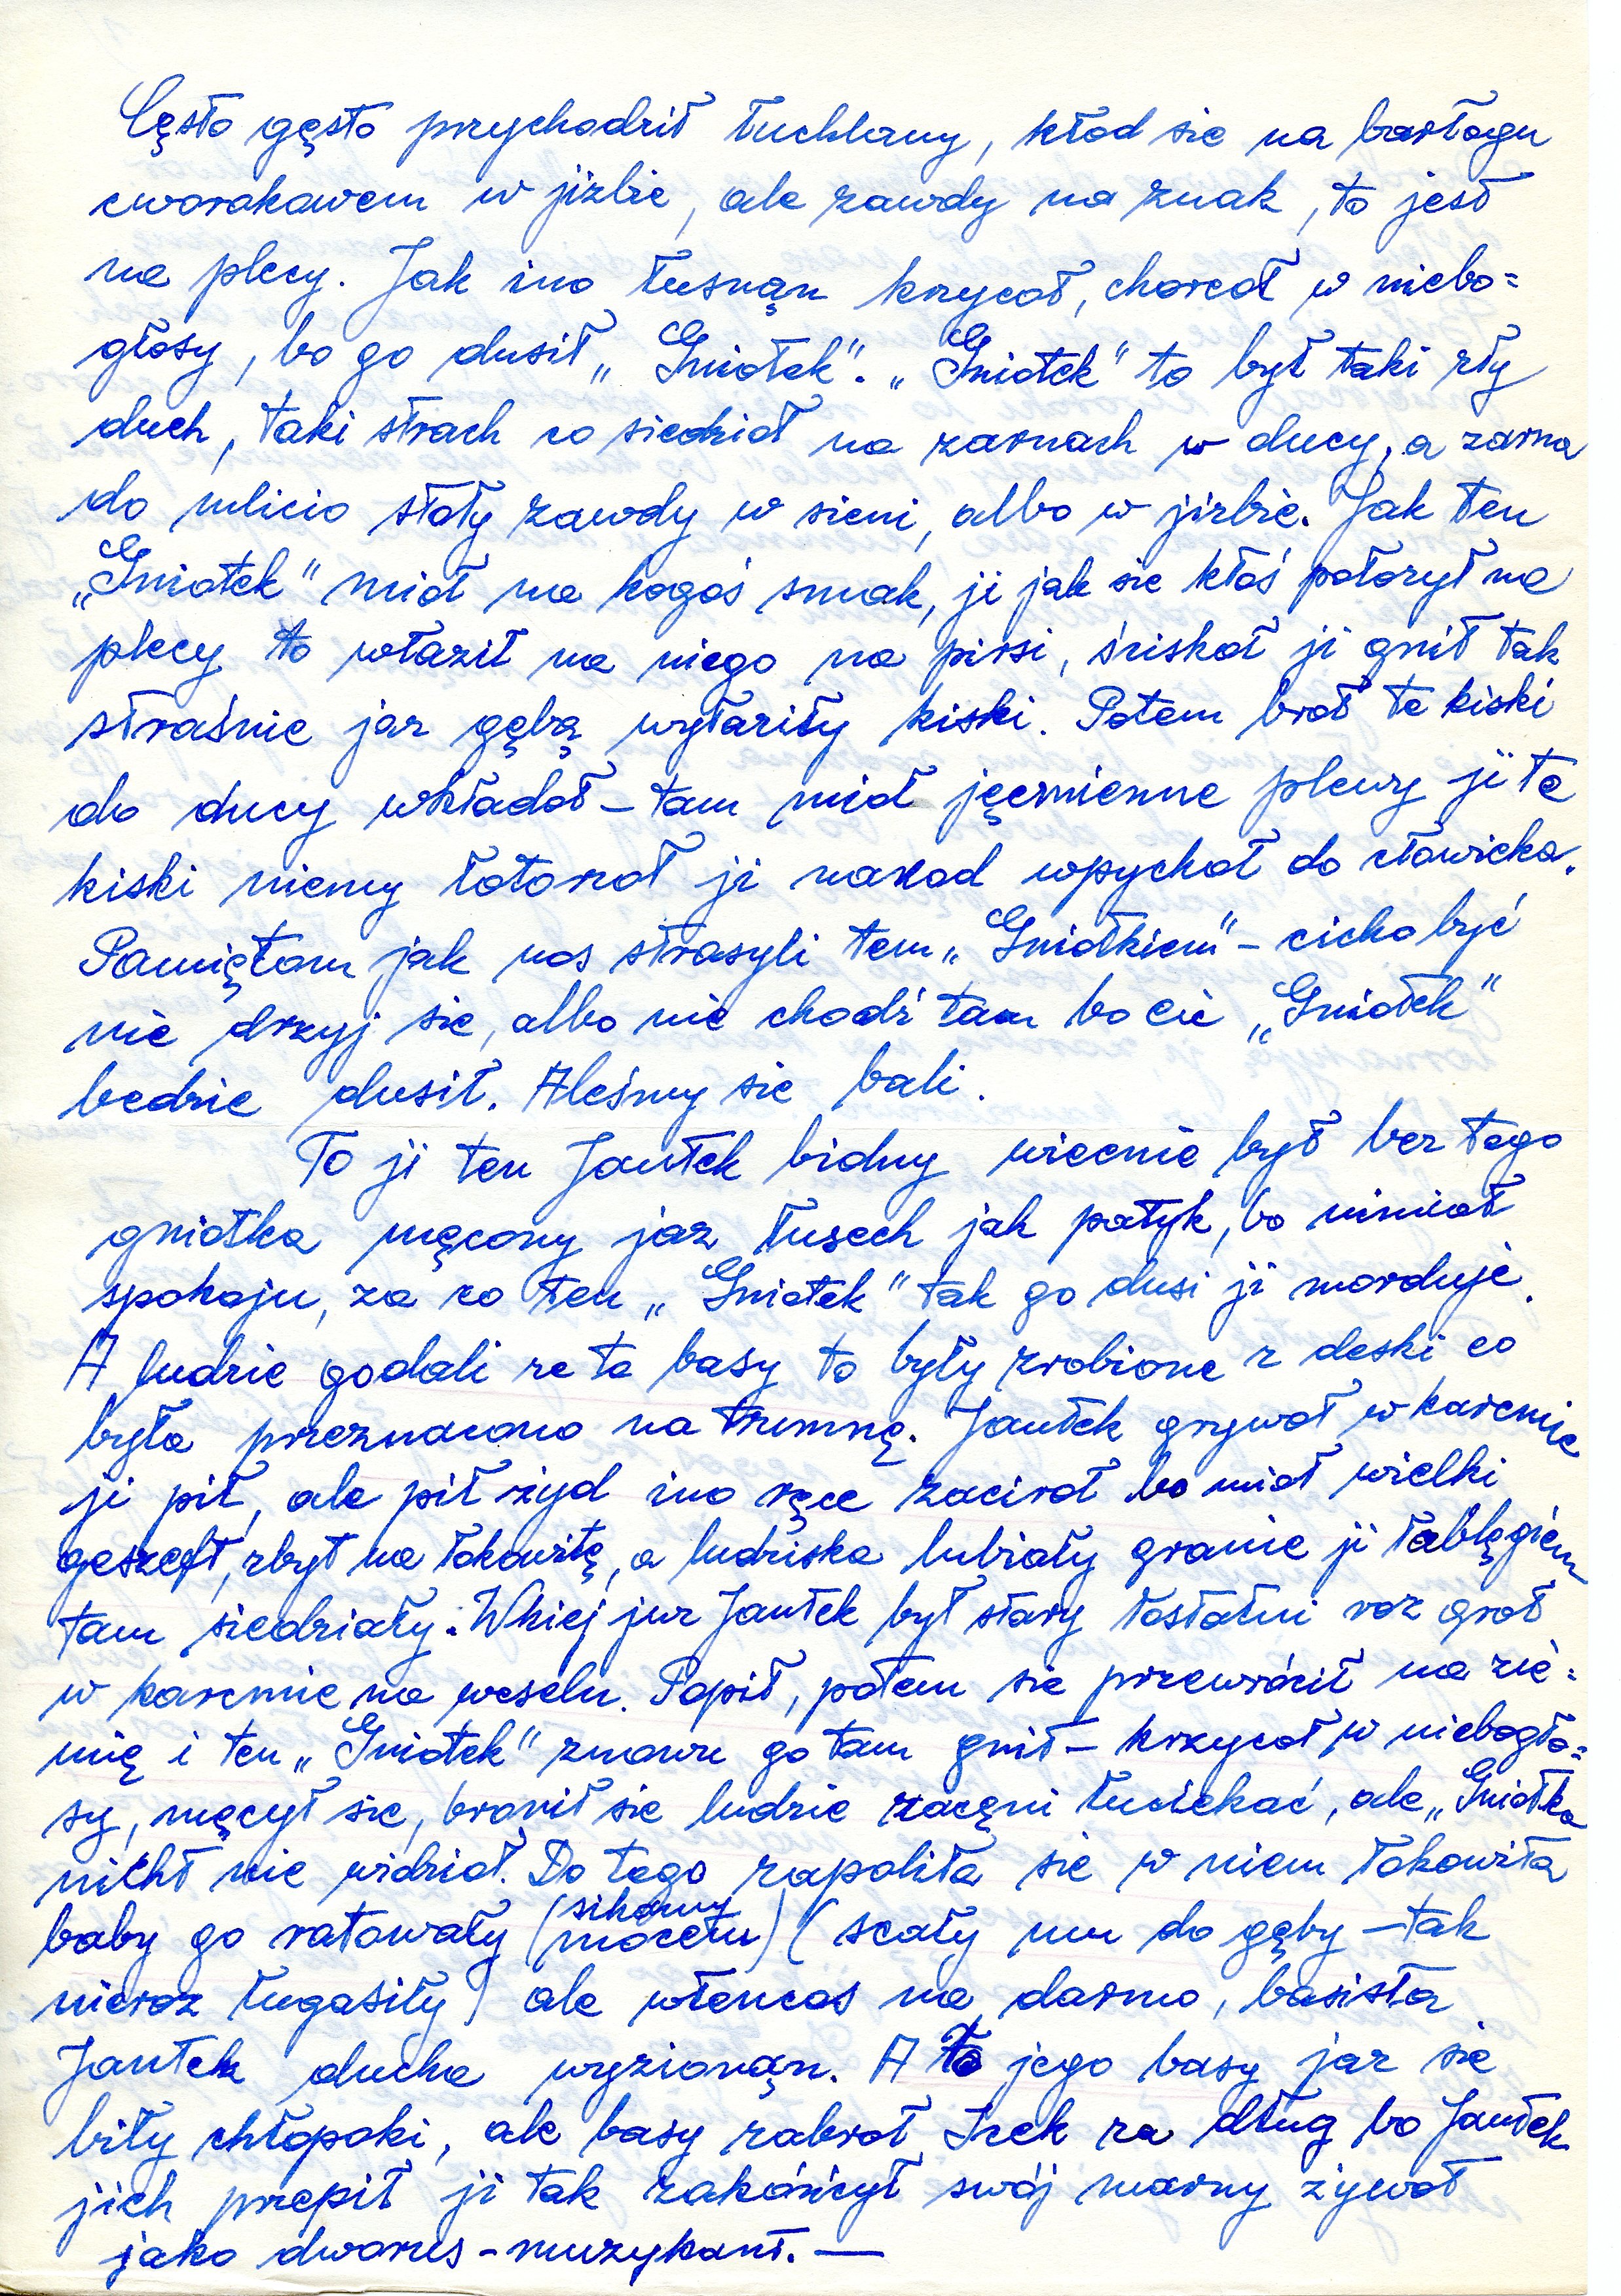 Cęsto gęsto przychodził łuchlany, kłod sie na barłogu
cworokawem w jizbie, ale zawdy na znak, to jest
na plecy. Jak ino łusnąn krzycoł, chorcoł w niebo=
głosy, bo go dusił „Gniotek". „Gniotek" to był taki zły
duch, taki strach co siedzioł na zarnach w ducy, a zarna
do mlicio stoły zawdy w sieni, albo w jizbie. Jak ten
„Gniotek" mioł na kogoś smak, ji jak sie ktoś połozył na
plecy to właził na niego na pirsi, ściskoł ji gnił tak
straśnie jaz gębą wyłaziły kiski. Potem broł te kiski
do ducy wkładoł – tam mioł jęcmienne plewy ji te
kiski niemy łotorzoł ji nazod wpychoł do cłowieka.
Pamiętom jak nos strasyli tem „Gniotkiem" – cicho być
nie drzyj sie, albo nie chodź tam bo cie „Gniotek"
bedzie dusił. Aleśmy sie bali.
To ji ten Jantek bidny wiecnie był bez tego
gniotka męcony jaz łusech jak patyk, bo nimioł
spokoju, za co ten „Gniotek" tak go dusi ji morduje.
A ludzie godali ze te basy to były zrobione z deski co
była przeznacono na trumnę. Jantek grywoł w karcmie
ji pił, ale pił żyd ino ręce zaciroł bo mioł wielki
geszeft, zbyt na łokowitę, a ludziska lubiały granie ji łoblęgiem
tam siedziały. Wkiej juz Jantek był stary łostatni roz groł
w karcmie na weselu. Popił, potem sie przewrócił na zie=
mię i ten „Gniotek" znowu go tam gnił – krzycoł w niebogło=
sy, męcył sie, bronił sie ludzie zacęni łuciekać, ale „Gniotka
nicht nie widzioł. Do tego zapoliła sie w niem łokowita
baby go ratowały (sikamy mocem) (scały mu do gęby – tak
nieroz ługasiły) ale wtencos na darmo, basista
Jantek ducha wyzionąn. A to jego basy jaz sie
biły chłopoki, ale basy zabroł Icek za dług bo Jantek
jich przepił ji tak zakóńcył swój marny żywot
jako dworus – muzykant. —